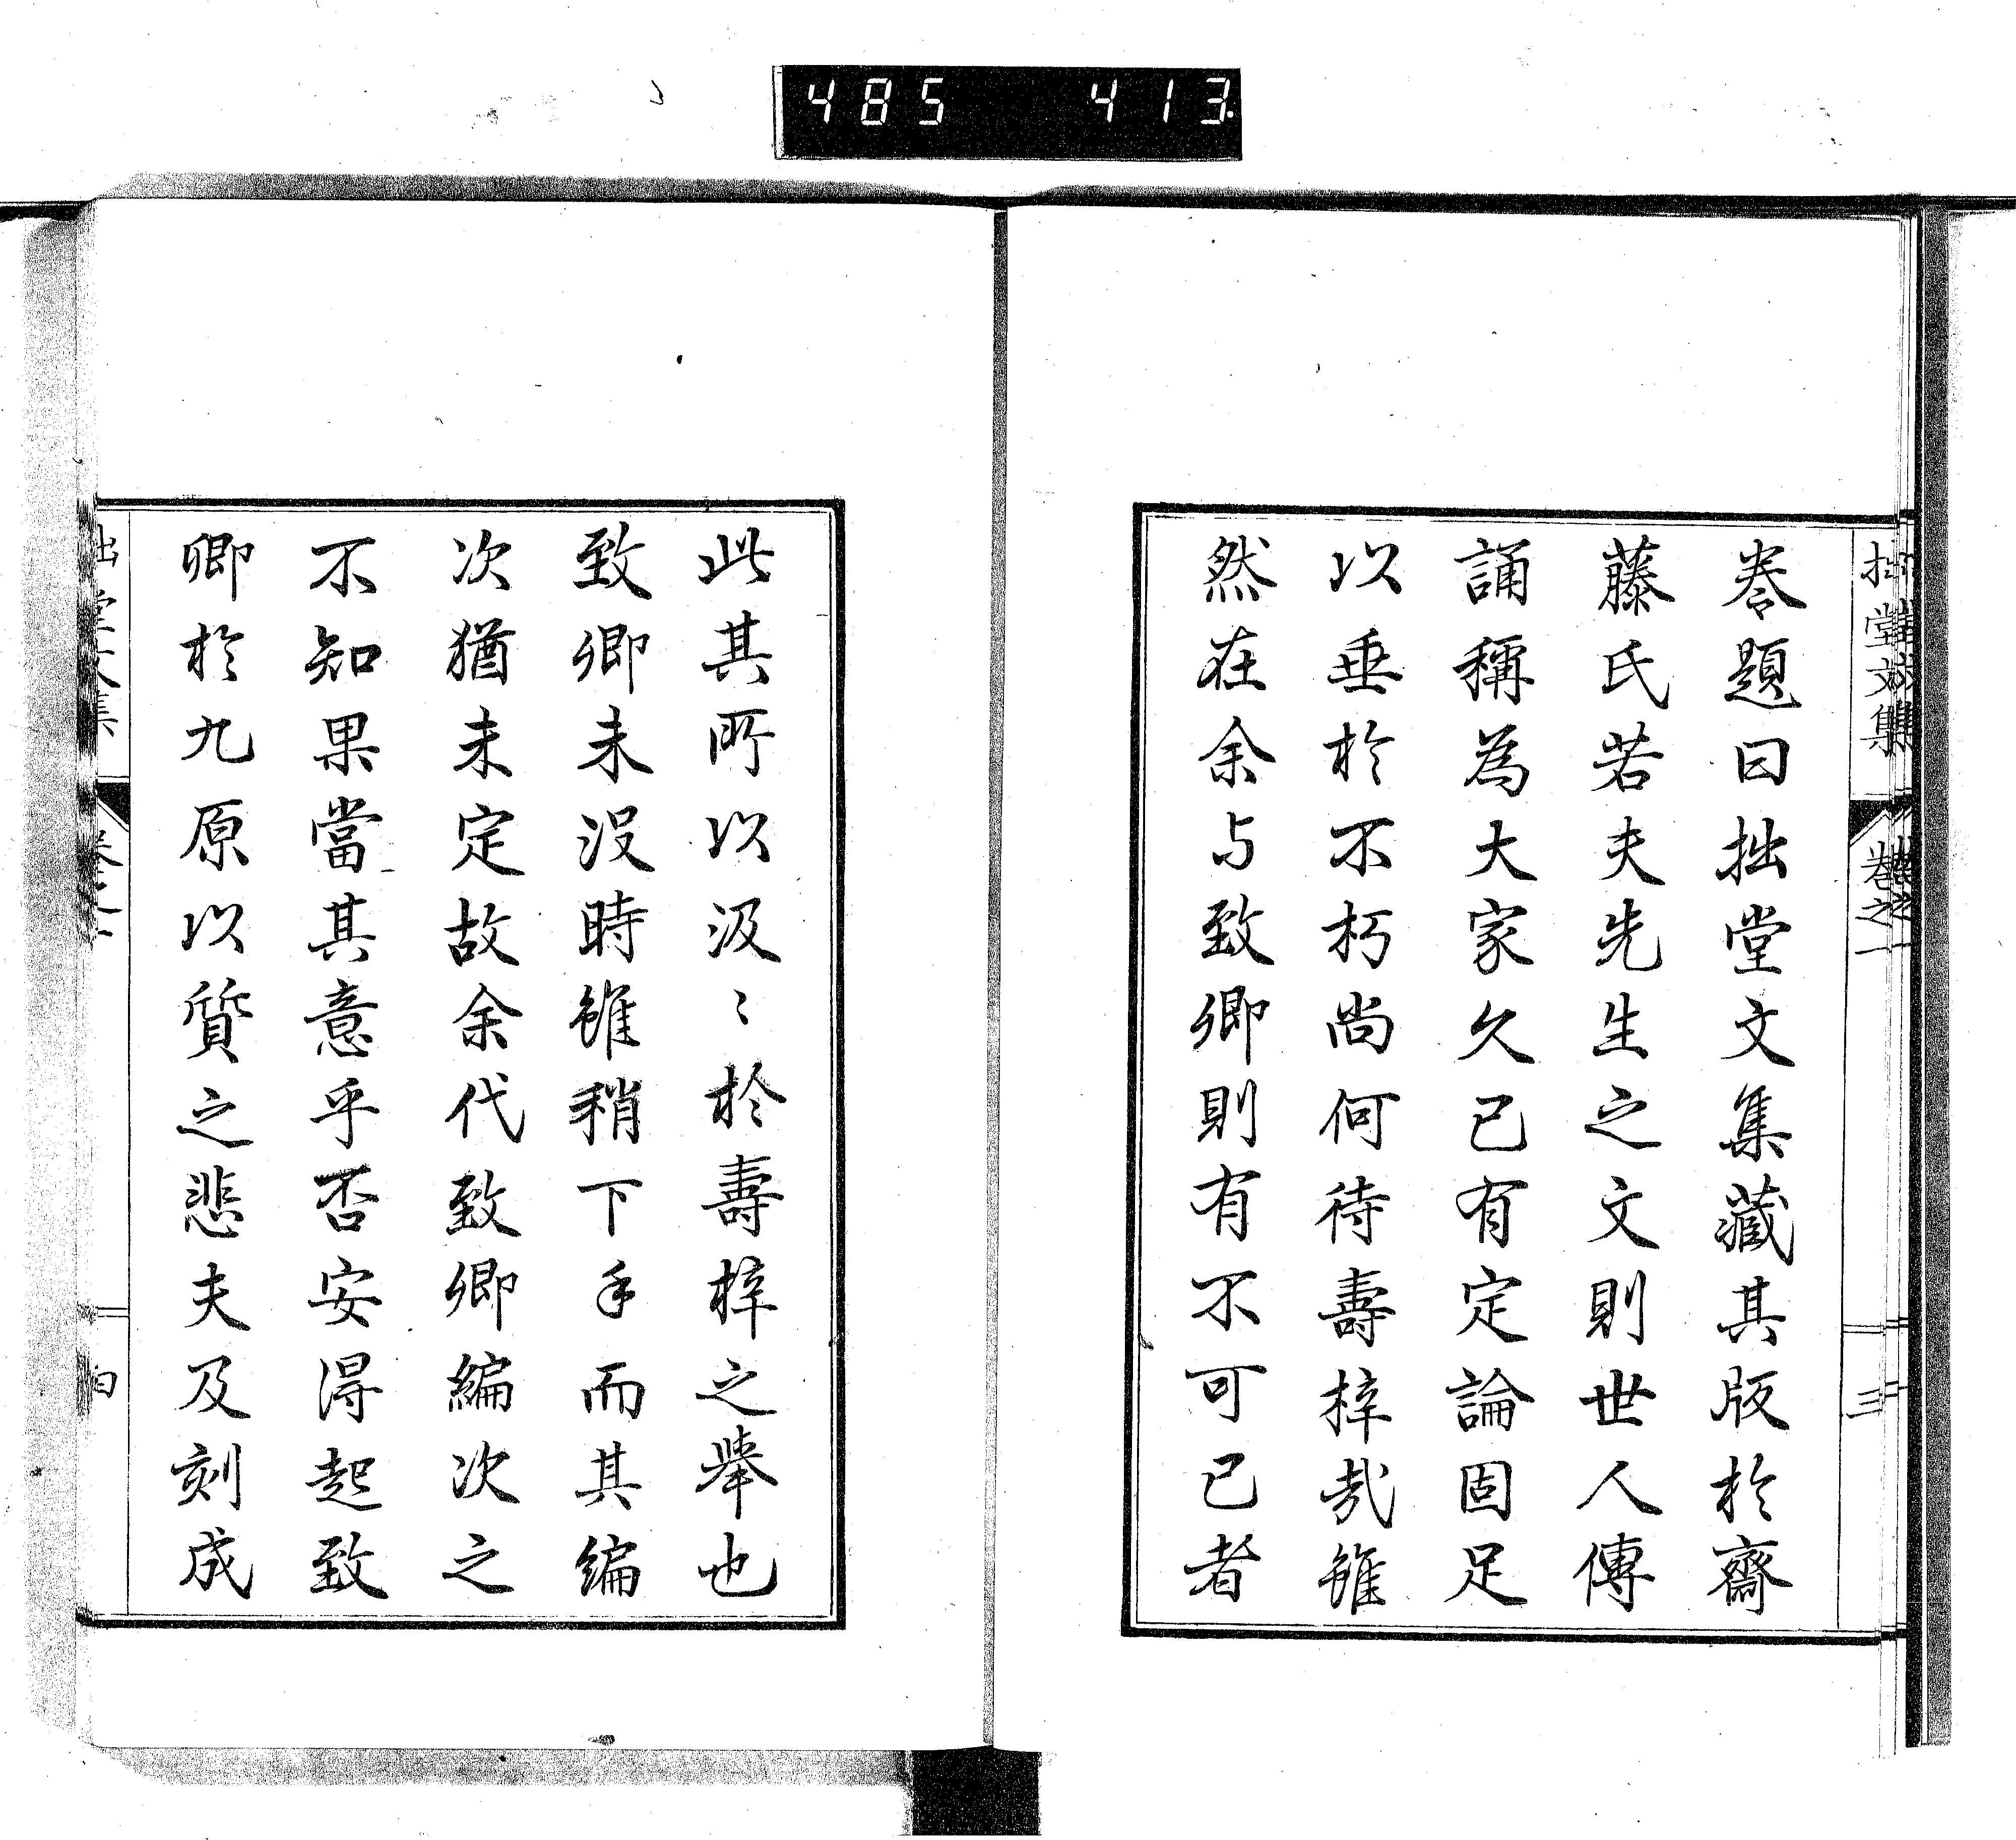 485 413
拙堂文集 卷之一 三
卷題曰拙堂文集藏其版於齋
藤氏若夫先生之文則世人傳
誦稱為大家久已有定論固足
以垂於不朽尚何待壽梓哉雖
然在余与致卿則有不可已者
此其所以汲〻於壽梓之舉也
致卿未没時雖稍下手而其編
次猶未定故余代致卿編次之
不知果當其意乎否安得起致
卿於九原以質之悲夫及刻成